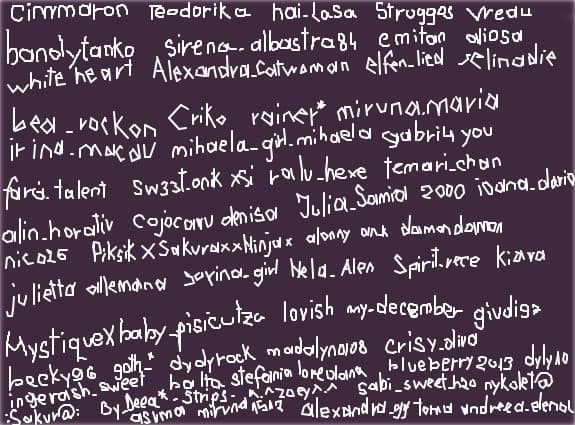 Cinnmaron Teodorika hai-lasa Struggas Vredu
bandytanko sirena-albastra84 emitan aliosa
white heart Alexandra_Catwoman elfen_lied selinadie
bea_rockon Criko rainer* miruna.maria
irina.macau mihaela_girl_mihaela gabri4 you
faris.talent sw33t.onk xsi ralu_hexe temari_chan
alin_horativ Cojocaru denisa Julia_Samira 2000 ioana_dario
nicole Piksik XSakuraxxNinjax alonny ank damandamon
julietta allemana sorina_girl Nela_Alen Spirit.rece kiara
MystiqueX baby_pisicutza lovish my-december giudiga
becky96 goth_* dydyrock madalyna108 crisy_diva
ingerash_sweet halta stefania loredana blueberry2013 dyly10
:Sakura@: By_Deea*-Strips-^.^zoey^.^ sabi_sweet_hao nykolet@
asuma miruna alexandra_gy toma andreea_elena